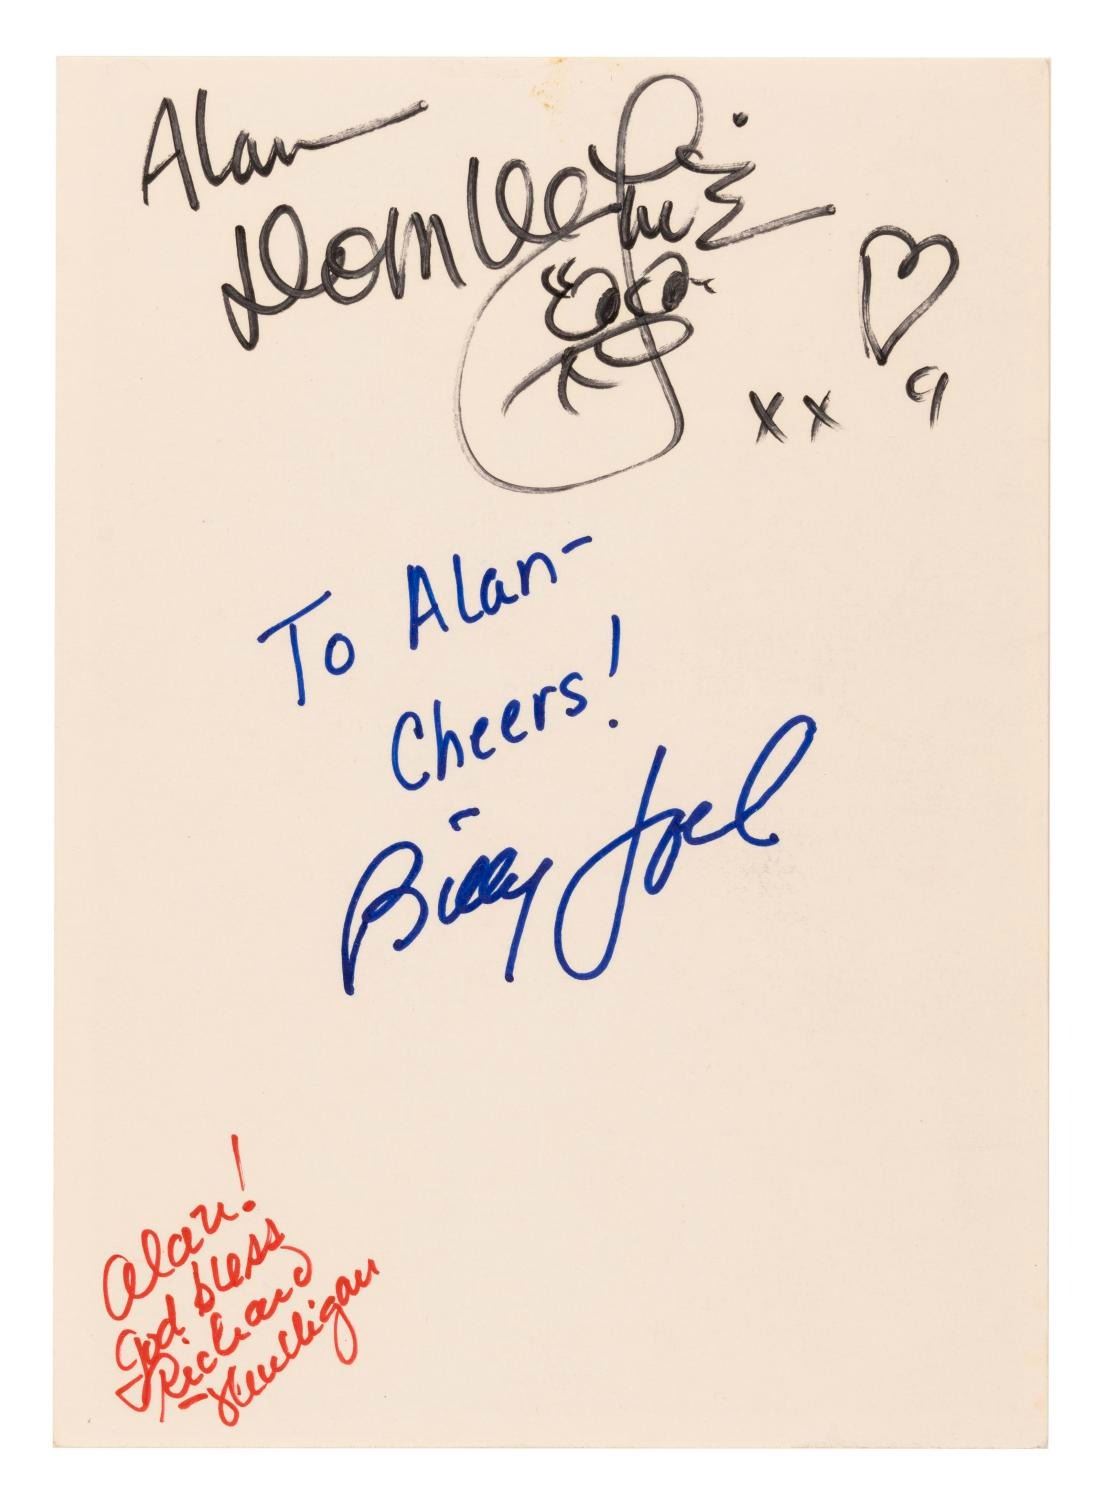 Alan
Dom DeLuise
xx
To Alan-
Cheers!
Billy Joel
Alan!
God bless
Richard
Mulligan